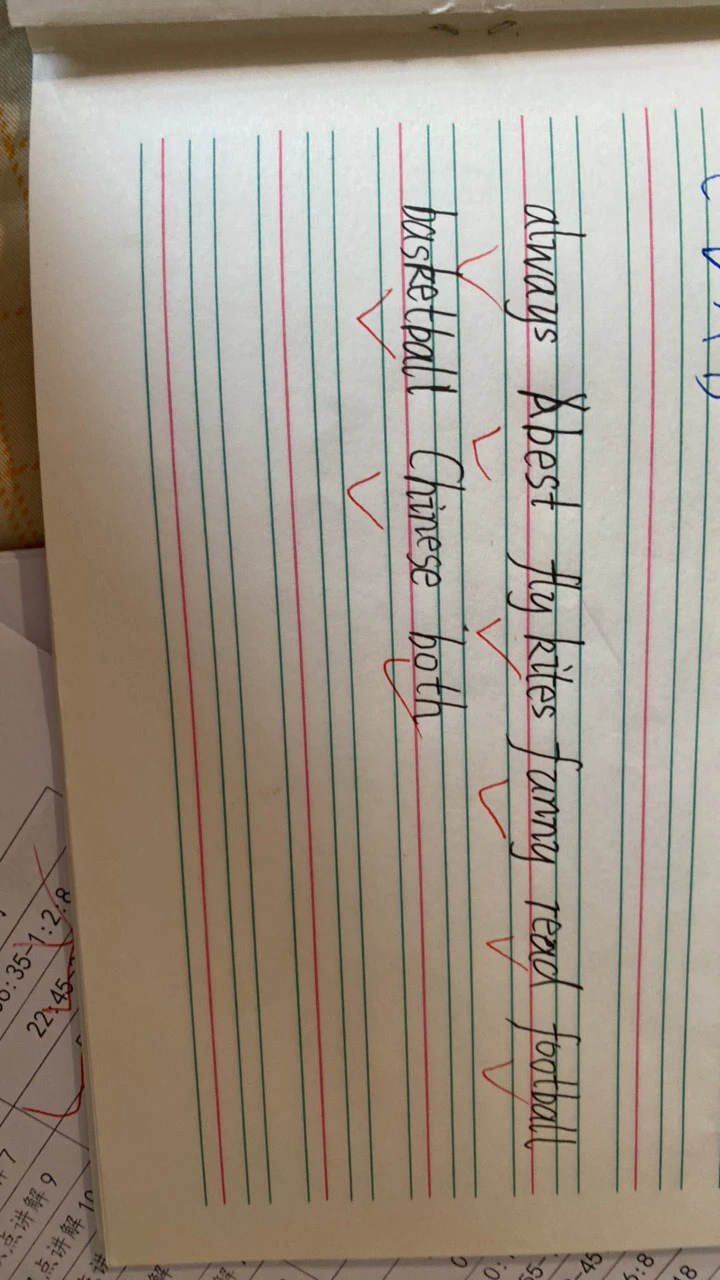 always best fly kites funny read football
basketball Chinese both
6:35-1:2:8
22:45
点讲解 9
点讲解 10